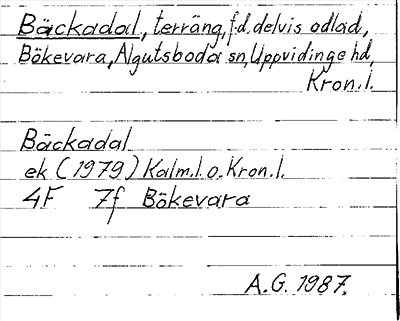 Bäckadal, terräng, f.d. delvis odlad,
Bökevara, Algutsboda sn, Uppvidinge hd,
Kron.l.
Bäckadal
ek (1979) Kalm.l. o. Kron.l.
4F 7f Bökevara
A.G. 1987.